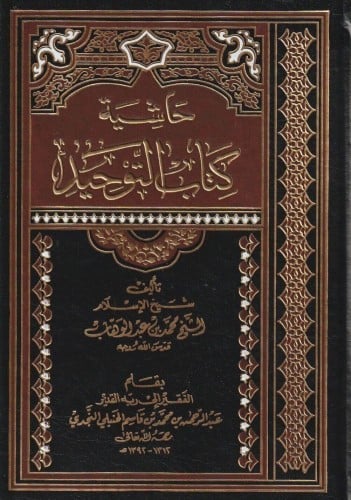 حاشية
كتاب التوحيد
تأليف
شيخ الإسلام
الشيخ محمد بن عبد الوهاب
قدس الله روحه
بقلم
الفقير إلى ربه القدير
عبد الرحمن بن محمد بن قاسم الحنبلي النجدي
رحمه الله تعالى
١٣١٢ - ١٣٩٢ هـ